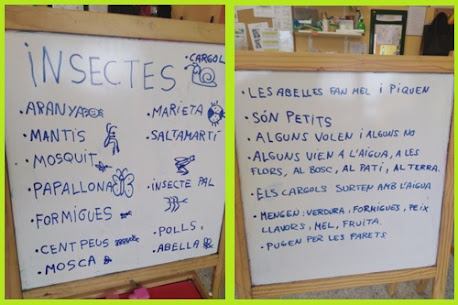 INSECTES
· CARGOL
· ARANYA
· MANTIS
· MOSQUIT
· PAPALLONA
· FORMIGUES
· CENT PEUS
· MOSCA
· MARIETA
· SALTAMARTÍ
· INSECTE PAL
· POLLS,
· ABELLA
· LES ABELLES FAN MEL I PIQUEN
· SÓN PETITS
· ALGUNS VOLEN I ALGUNS NO
· ALGUNS VIEN A L'AIGUA, A LES
FLORS, AL BOSC, AL PATI, AL TERRA.
· ELS CARGOLS SURTEN AMB L'AIGUA
· MENGEN: VERDURA, FORMIGUES, PEIX
LLAVORS, MEL, FRUITA.
· PUGEN PER LES PARETS